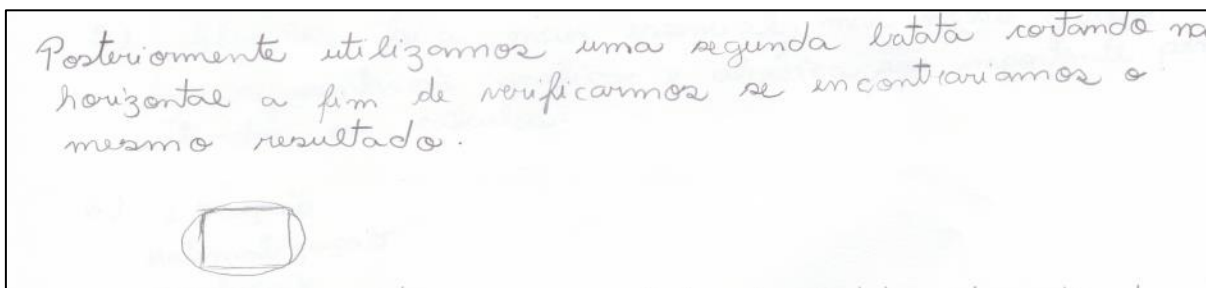 Posteriormente utilizamos uma segunda batata cortando na
horizontal a fim de verificarmos se encontrariamos o
mesmo resultado.